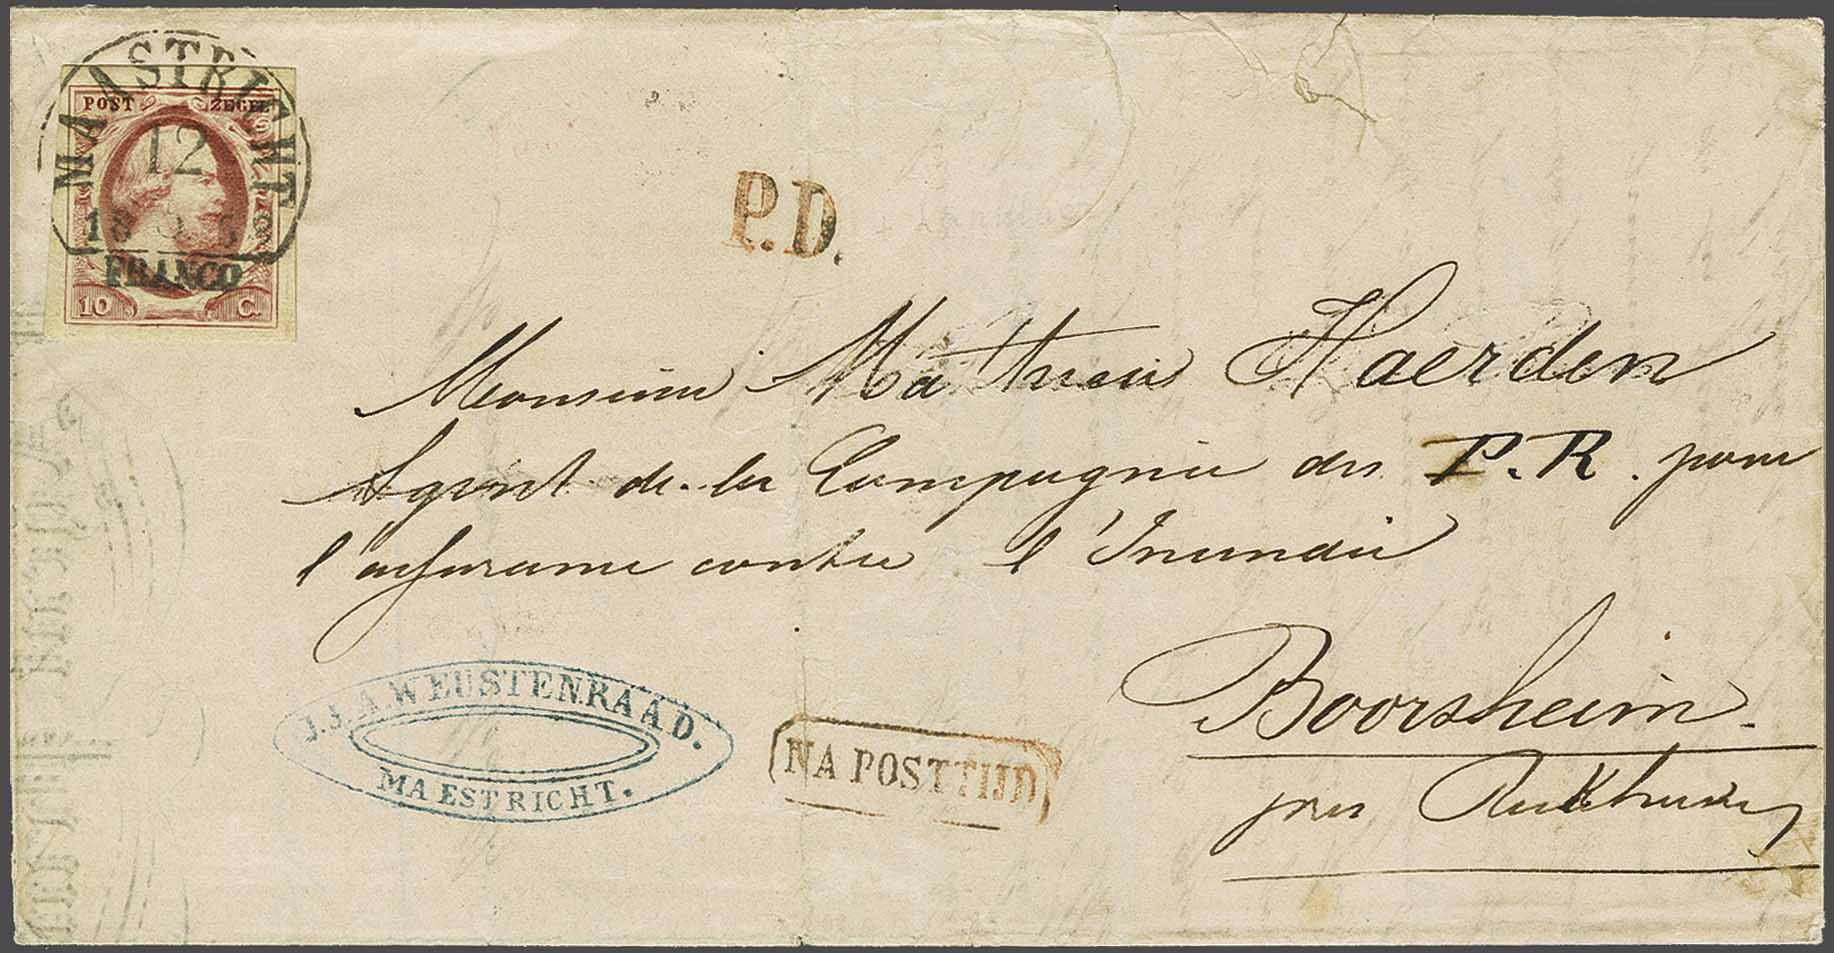 MAASTRICHT
12
FRANCO
POST ZEGEL
10 C.
P.D.
Monsieur Mathieu Haerden
Agent de la Compagnie des P.R. pour
l'assurance contre l'Incendie
Boorsheim
près
J.J.A. WEUSTENRAAD.
MAESTRICHT.
NA POSTTIJD